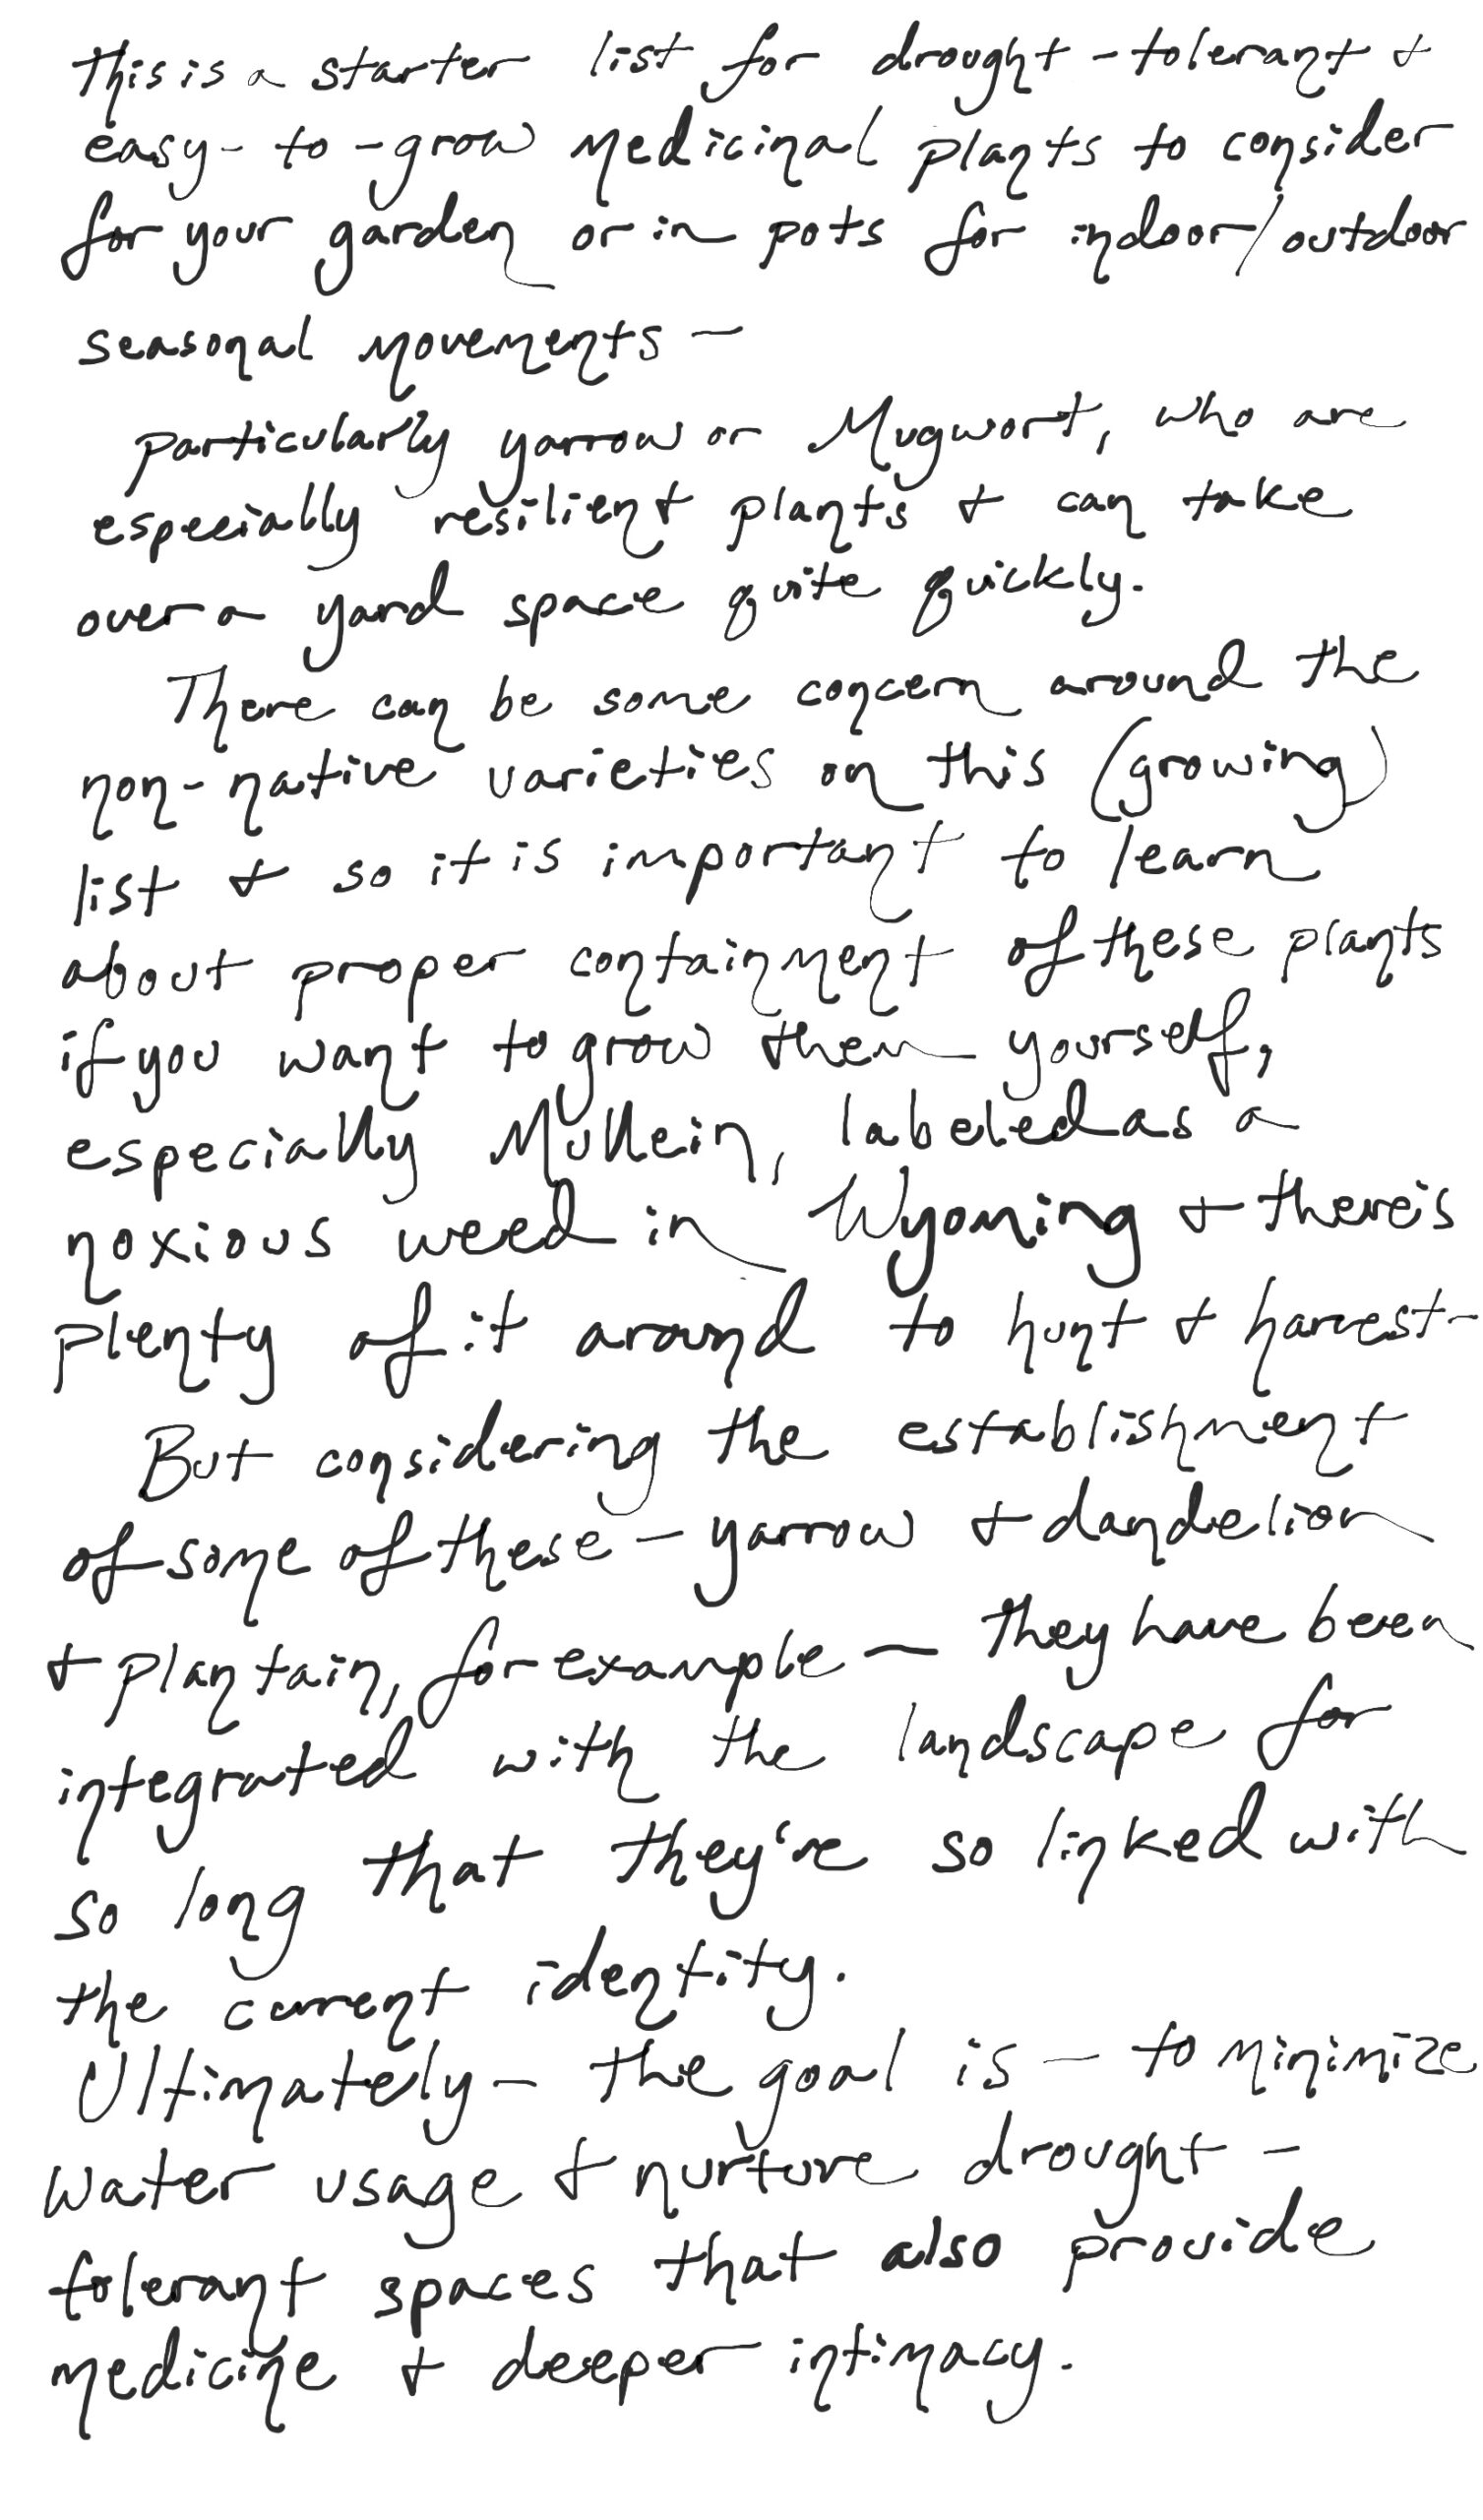 This is a starter list for drought-tolerant &
easy-to-grow medicinal plants to consider
for your garden or in pots for indoor/outdoor
seasonal movements —
particularly yarrow or Mugwort, who are
especially resilient plants & can take
over a yard space quite quickly.
There can be some concern around the
non-native varieties on this (growing)
list & so it is important to learn
about proper containment of these plants
if you want to grow them yourself,
especially Mullein, labeled as a
noxious weed in Wyoming & there's
plenty of it around to hunt & harvest-
But considering the establishment
of some of these - yarrow & dandelion
& plantain, for example — they have been
integrated with the landscape for
so long that they're so linked with
the current identity.
Ultimately - the goal is - to minimize
water usage & nurture drought -
tolerant spaces that also provide
medicine & deeper intimacy.